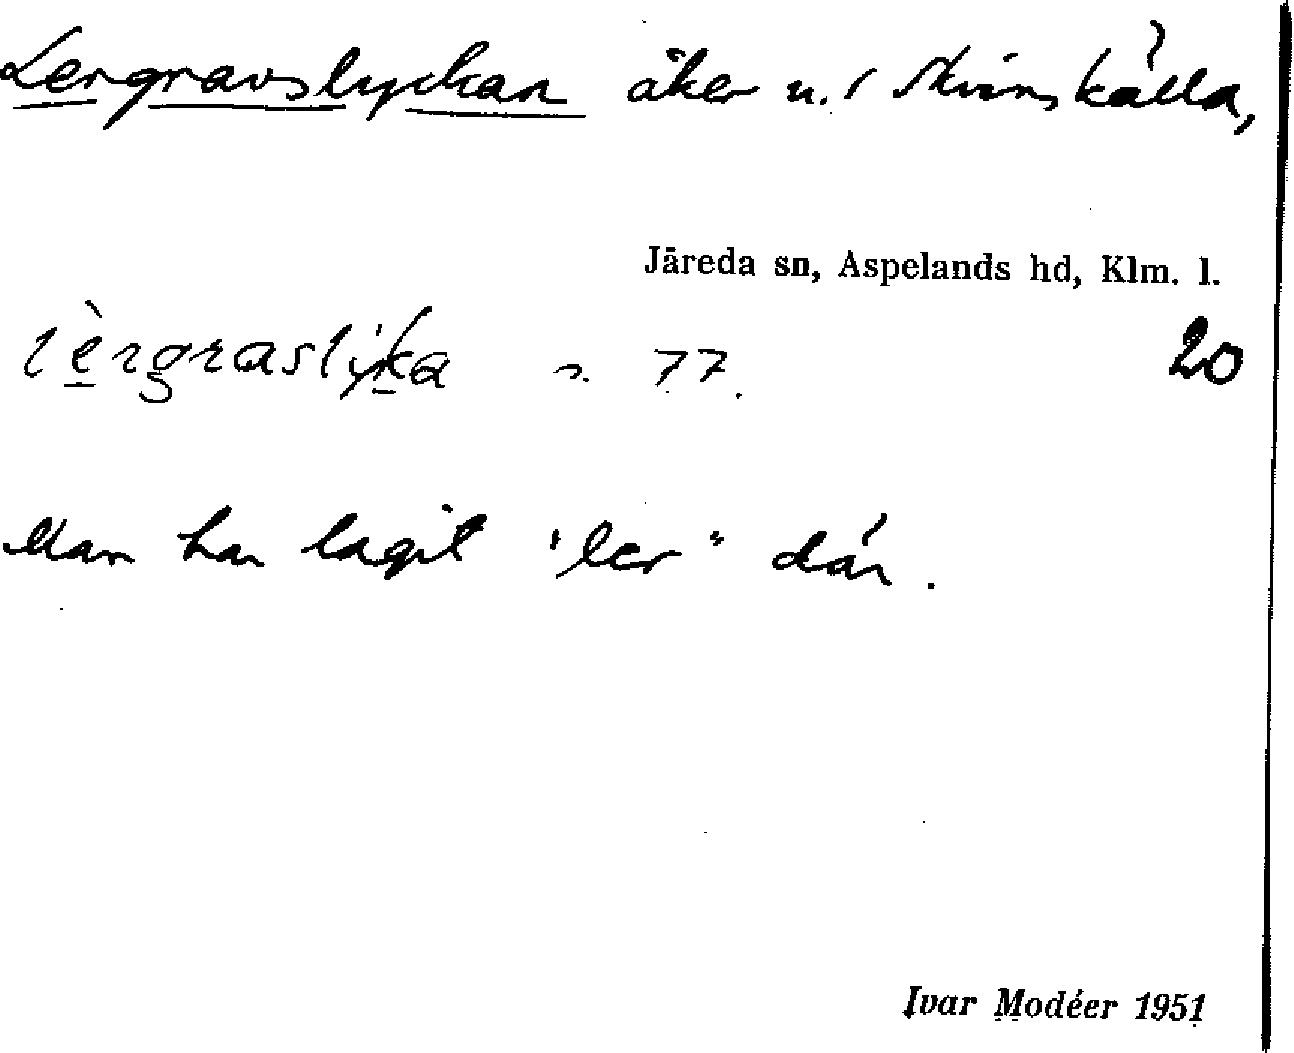 Lergravslyckan åker u. Skinskälla,
Järeda sn, Aspelands hd, Klm. l.
lèrgraslyka s. 77. 20
Man har tagit "ler" där.
Ivar Modéer 1951